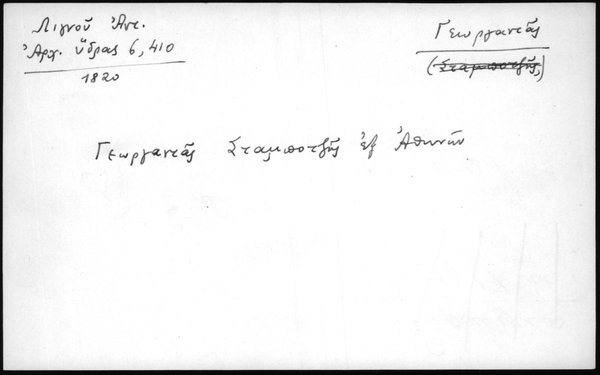 Λιγνοῦ Ἀντ.
Ἀρχ. Ὕδρας 6, 410
1820
Γεωργαντᾶς
(Σταμποτζῆς)
Γεωργαντᾶς Σταμποτζῆς ἐξ Ἀθηνῶν